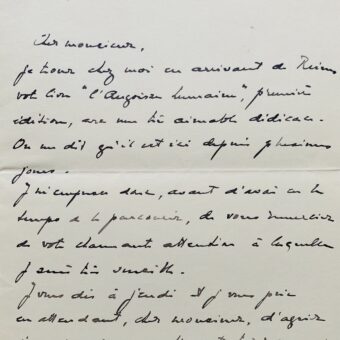 Cher monsieur,
Je trouve chez moi en arrivant de Reims
votre livre "l'Angoisse humaine", première
édition, avec une très aimable dédicace.
On me dit qu'il est ici depuis plusieurs
jours.
J'm'empresse donc, avant d'avoir eu le
temps de le parcourir, de vous remercier
de votre charmante attention à laquelle
j'ai été très sensible.
Je vous dis à jeudi et je vous prie
en attendant, cher monsieur, d'agréer